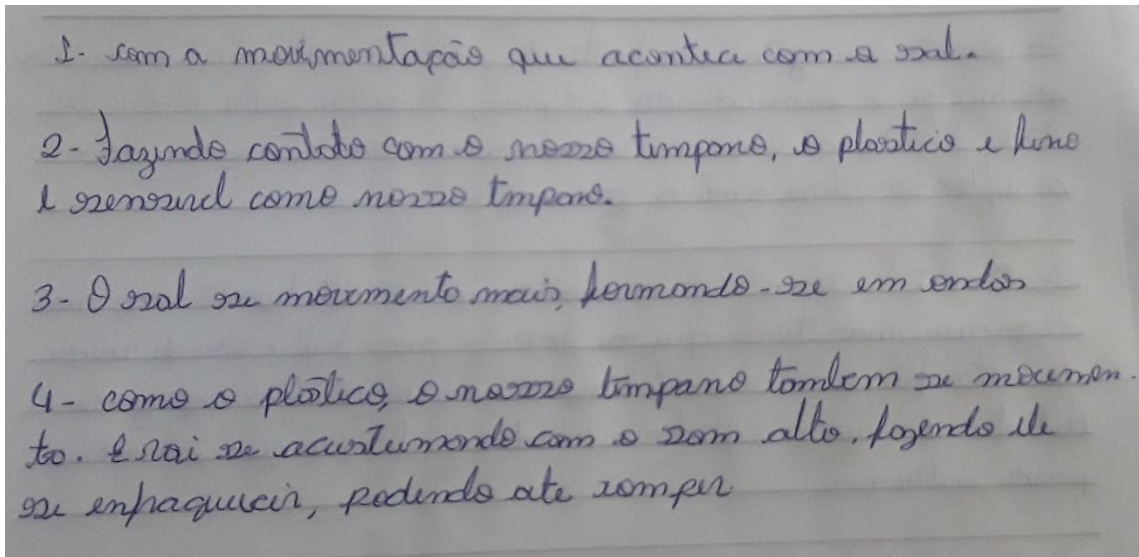 1- com a movimentação que acontece com o sal.
2- fazendo contato com o nosso timpano, o plastico e fino
e sensivel como nosso timpano.
3- O sal se movimenta mais, formando-se em ondas
4- como o plástico, o nosso timpano tambem se movimen-
ta. E vai se acustumando com o som alto, fazendo ele
se enfraquecer, podendo ate romper